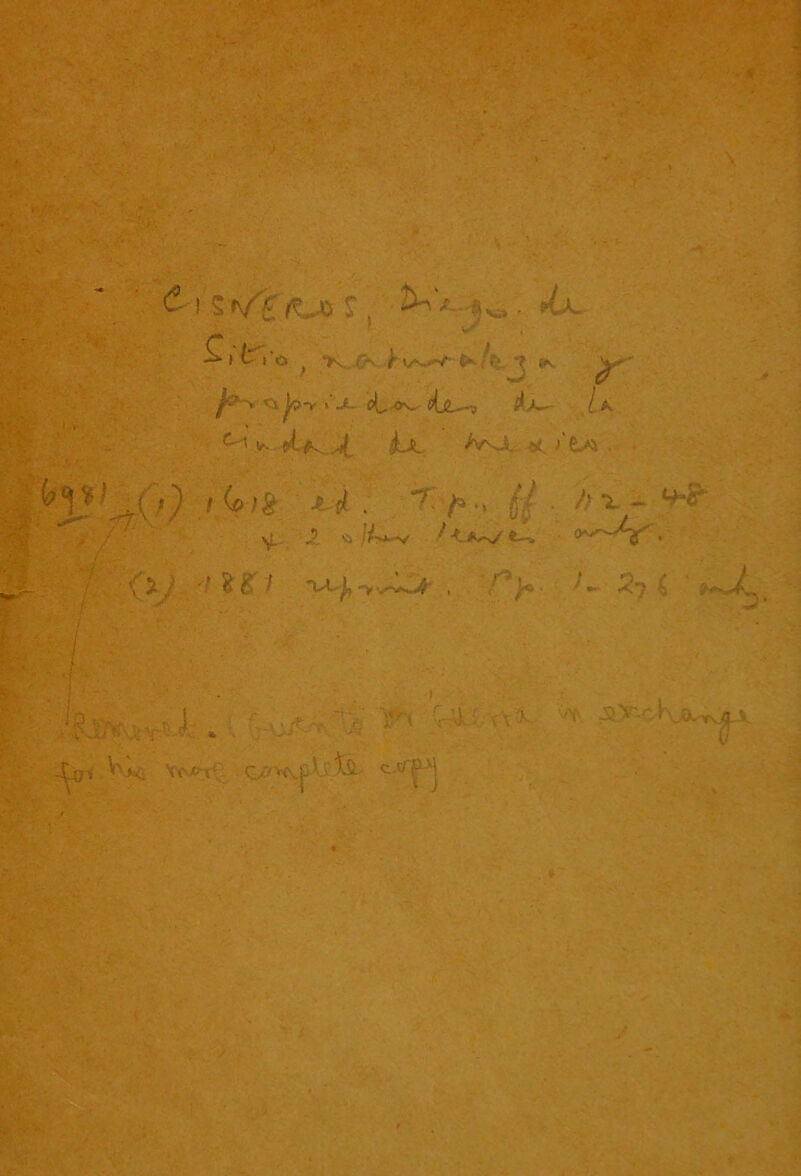 Cisneros, Diego. de
Sitio, naturaleza y
propriedades de la
ciudad de Mexico.
(1) 1618 ed. T.p., ff. 112-48
& 2 other leaves only.
(2) 1881 reprint. Pp. 1-276 only.
Removed. in exchange
for his more complete copy